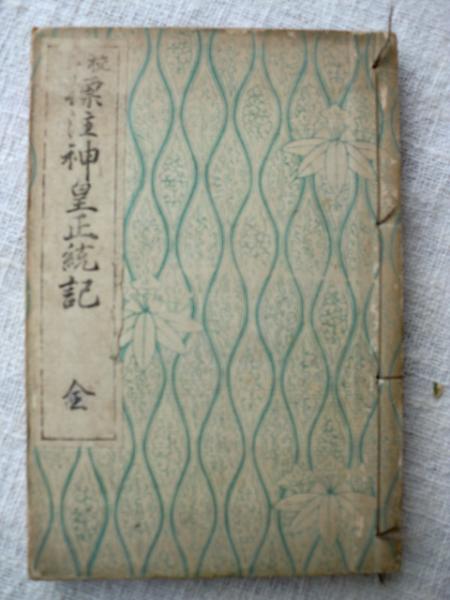 校
標註神皇正統記
全